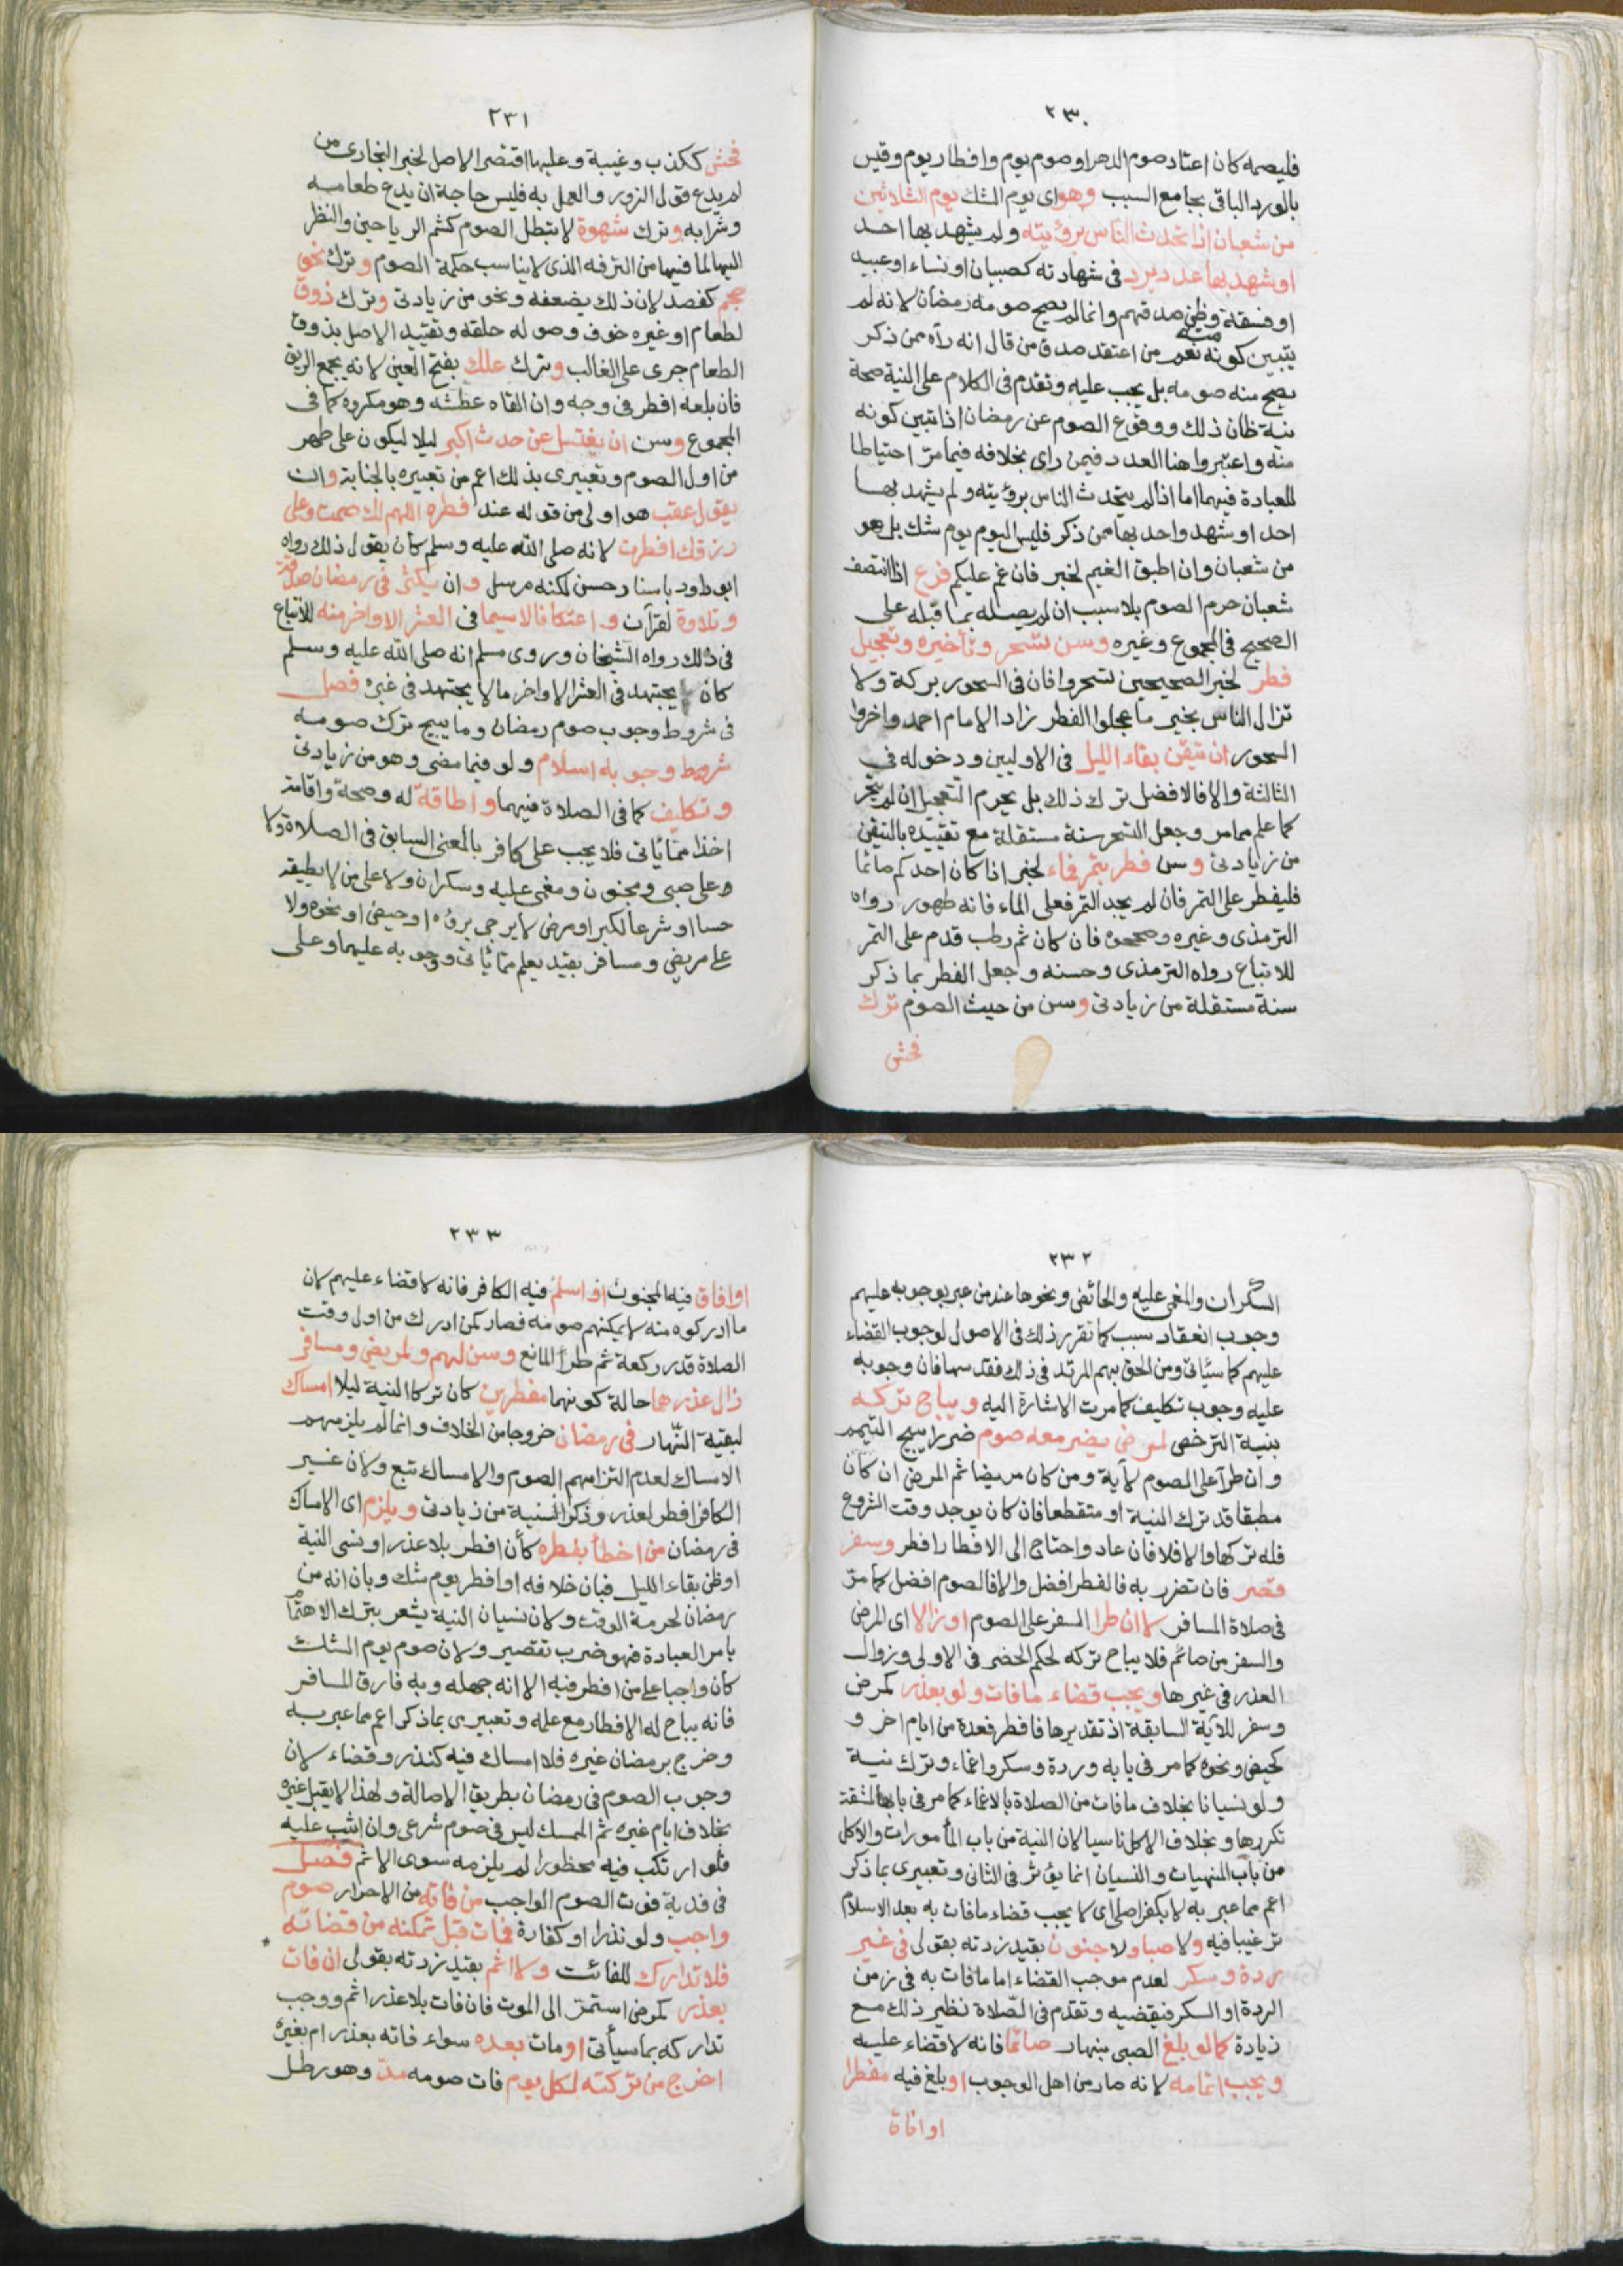 ٢٣٠
فليصمه كان اعتاد صوم الدهر او صوم يوم وافطار يوم وقيس
بالورد الباقى بجامع السبب وهو اى يوم الشك يوم الثلاثين
من شعبان اذا تحدث الناس برؤيته ولم يشهد بها احد
او شهد بها عدد يرد فى شهادته كصبيان او نساء او عبيد
او فسقة وظن صدقهم وانما لم يصح صومه رمضان لانه لم
يتبين كونه منه نعم من اعتقد صدق من قال انه رآه ممن ذكر
يصح منه صومه بل يجب عليه وتقدم فى الكلام على النية صحة
نية ظان ذلك ووقوع الصوم عن رمضان اذا تبين كونه
منه واعتبروا هنا العدد فيمن راى بخلافه فيما مرّ احتياطا
للعبادة فيهما اما اذا لم يتحدث الناس برؤيته ولم يشهد بها
احد او شهد واحد بها ممن ذكر فليس اليوم يوم شك بل هو
من شعبان وان اطبق الغيم لخبر فان غم عليكم فرع اذا انتصف
شعبان حرم الصوم بلا سبب ان لم يصله بما قبله على
الصحيح فى المجموع وغيره وسن تسحر وتأخيره وتعجيل
فطر لخبر الصحيحين تسحروا فان فى السحور بركة ولا
تزال الناس بخير ما عجلوا الفطر زاد الامام احمد واخروا
السحور ان تيقن بقاء الليل فى الاوليين ودخوله فى
الثالثة والا فالافضل ترك ذلك بل يحرم التعجيل ان لم يتحر
كما علم مما مر وجعل التسحر سنة مستقلة مع تقييده بالتيقن
من زيادتى وسن فطر بتمر فماء لخبر اذا كان احدكم صائما
فليفطر على التمر فان لم يجد التمر فعلى الماء فانه طهور رواه
الترمذى وغيره وصححوه فان كان ثم رطب قدم على التمر
للاتباع رواه الترمذى وحسنه وجعل الفطر بما ذكر
سنة مستقلة من زيادتى وسن من حيث الصوم ترك
فحش
٢٣١
فحش ككذب وغيبة وعليها اقتصر الاصل لخبر البخارى من
لم يدع قول الزور والعمل به فليس حاجة ان يدع طعامه
وشرابه وترك شهوة لا تبطل الصوم كشم الرياحين والنظر
اليها لما فيها من الترفه الذى لا يناسب حكمة الصوم وترك نحو
حجم كفصد لان ذلك يضعفه ونحو من زيادتى وترك ذوق
لطعام او غيره خوف وصوله حلقه وتقييد الاصل بذوق
الطعام جرى على الغالب وترك علك بفتح العين لانه يجمع الريق
فان بلعه افطر فى وجه وان القاه عطشه وهو مكروه كما فى
المجموع وسن ان يغتسل عن حدث اكبر ليلا ليكون على طهر
من اول الصوم وتعبيرى بذلك اعم من تعبيره بالجنابة وان
يقول عقب هو اولى من قوله عند فطره اللهم لك صمت وعلى
رزقك افطرت لانه صلى الله عليه وسلم كان يقول ذلك رواه
ابو داود باسناد حسن لكنه مرسل وان يكثر فى رمضان صدقة
وتلاوة لقرآن واعتكافا لاسيما فى العشر الاواخر منه للاتباع
فى ذلك رواه الشيخان وروى مسلم انه صلى الله عليه وسلم
كان يجتهد فى العشر الاواخر ما لا يجتهد فى غيره فصل
فى شروط وجوب صوم رمضان وما يبيح ترك صومه
شروط وجوبه اسلام ولو فيما مضى وهو من زيادتى
وتكليف كما فى الصلاة فيهما واطاقة له وصحة واقامة
اخذا مما ياتى فلا يجب على كافر بالمعنى السابق فى الصلاة ولا
وعلى صبى ومجنون ومغمى عليه وسكران ولا على من لا يطيقه
حسا او شرعا لكبر او مرض لا يرجى برؤه او حيض او نحوه ولا
على مريض ومسافر بقيد يعلم مما ياتى ووجوبه عليهما وعلى
٢٣٢
السكران والمغمى عليه والحائض ونحوها عند من عبر بوجوبه عليهم
وجوب انعقاد سبب كما تقرر ذلك فى الاصول لوجوب القضاء
عليهم كما سياتى ومن الحق بهم المرتد فى ذلك فقد سها فان وجوبه
عليه وجوب تكليف كما مرت الاشارة اليه ويباح تركه
بنية الترخص لمرض يضر معه صوم ضررا يبيح التيمم
وان طرأ على الصوم لآية ومن كان مريضا ثم المرض ان كان
مطبقا قد ترك النية او متقطعا فان كان يوجد وقت الشروع
فله تركها والا فلا فان عاد واحتاج الى الافطار افطر وسفر
قصر فان تضرر به فالفطر افضل والا فالصوم افضل كما مرّ
فى صلاة المسافر لا ان طرا السفر على الصوم او زالا اى المرض
والسفر من صائم فلا يباح تركه لحكم الحضر فى الاولى وزوال
العذر فى غيرها ويجب قضاء ما فات ولو بعذر كمرض
وسفر للآية السابقة اذ تقديرها فافطر فعدة من ايام اخر و
كحيض ونحوه كما مر فى بابه وردة وسكر واغماء وترك نية
ولو نسيانا بخلاف ما فات من الصلاة بالاغماء كما مر فى بابها لمشقة
تكررها وبخلاف الاكل ناسيا لان النية من باب المأمورات والاكل
من باب المنهيات والنسيان انما يؤثر فى الثانى وتعبيرى بما ذكر
اعم مما عبر به لا بكفر اصلى اى لا يجب قضاء ما فات به بعد الاسلام
ترغيبا فيه ولا صبا ولا جنون بقيد زدته بقولى فى غير
ردة وسكر لعدم موجب القضاء اما ما فات به فى زمن
الردة او السكر فيقضيه وتقدم فى الصّلاة نظير ذلك مع
زيادة كما لو بلغ الصبى بنهار صائما فانه لا قضاء عليه
ويجب اتمامه لانه صار من اهل الوجوب او بلغ فيه مفطرا
او افاق
٢٣٣
او افاق فيه المجنون او اسلم فيه الكافر فانه لا قضاء عليهم لان
ما ادركوه منه لا يمكنهم صومه فصار كمن ادرك من اول وقت
الصلاة قدر ركعة ثم طرأ المانع وسن لهم ولمريض ومسافر
زال عذرهما حالة كونهما مفطرين كان تركا النية ليلا امساك
لبقية النّهار فى رمضان خروجا من الخلاف وانما لم يلزمهم
الامساك لعدم التزامهم الصوم والامساك تبع ولان غير
الكافر افطر لعذر وذكر السنية من زيادتى ويلزم اى الامساك
فى رمضان من اخطأ بفطره كأن افطر بلا عذر او نسى النية
او ظن بقاء الليل فبان خلافه او افطر يوم شك وبان انه من
رمضان لحرمة الوقت ولان نسيان النية يشعر بترك الاهتمام
بامر العبادة فهو ضرب تقصير ولان صوم يوم الشك
كان واجبا على من افطر فيه الا انه جهله وبه فارق المسافر
فانه يباح له الافطار مع علمه وتعبيرى بما ذكر اعم مما عبر به
وخرج برمضان غيره فلا امساك فيه كنذر وقضاء لان
وجوب الصوم فى رمضان بطريق الاصالة ولهذا لا يقبل غيره
بخلاف ايام غيره ثم الممسك ليس فى صوم شرعى وان اثيب عليه
فلو ارتكب فيه محظورا لم يلزمه سوى الاثم فصل
فى فدية فوت الصوم الواجب من فاته من الاحرار صوم
واجب ولو نذرا او كفارة فمات قبل تمكنه من قضائه
فلا تدارك للفائت ولا اثم بقيد زدته بقولى ان فات
بعذر كمرض استمر الى الموت فان فات بلا عذر اثم ووجب
تداركه بما سيأتى او مات بعده سواء فاته بعذر ام بغيره
اخرج من تركته لكل يوم فات صومه مدّ وهو رطل